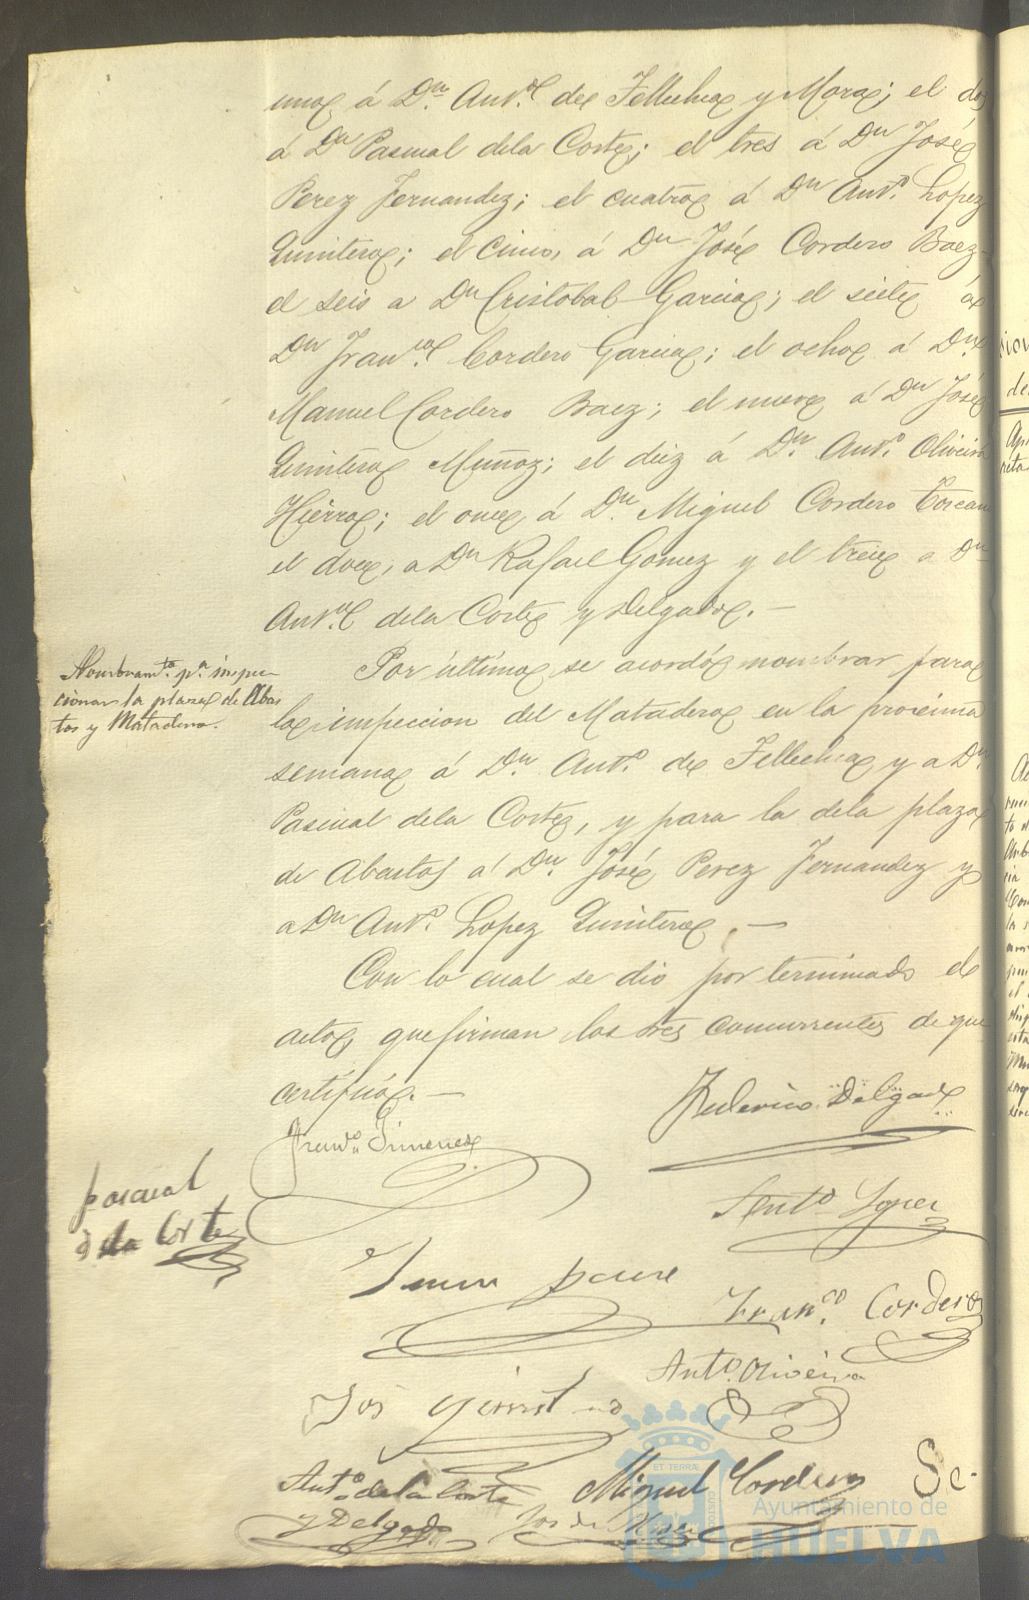 uno á Dn. Anto. de Tellechea y Mora; el dos
á Dn Pascual dela Corte; el tres á Dn José
Perez Fernandez; el cuatro á Dn Anto. Lopez
Quintero; el cinco, á Dn José Cordero Baez
el seis a Dn Cristobal Garcia; el siete á
Dn Franco. Cordero Garcia; el ocho á Dn.
Manuel Cordero Baez; el nueve á Dn José
Quintero Muñoz; el diez á Dn. Anto. Oliveira
Hierro; el once, á Dn. Miguel Cordero
el doce, a Dn Rafael Gomez y el trece a Dn
Anto. dela Corte y Delgado.—
Nombramto. pa. inspec-
cionar la plaza de Abas
tos y Matadero.
Por último se acordó nombrar para
la inspeccion del Matadero en la procsima
semana á Dn. Anto. de Tellechea y a Dn.
Pascual dela Corte, y para la dela plaza
de Abastos á Dn. José Perez Fernandez y
a Dn Anto. Lopez Quintero.—
Con lo cual se dio por terminado el
acto, que firman los Sres concurrentes de que
certifico.—
Federico Delgado
Franco. Jimenez
Pascual
dela Corte
Anto. Lopez
Franco. Cordero
Anto. Oliveira
José
Anto. de la Corte
y Delgado
Miguel Cordero
José
Se-
ET TERRÆ
CUSTODIA
Ayuntamiento de
HUELVA